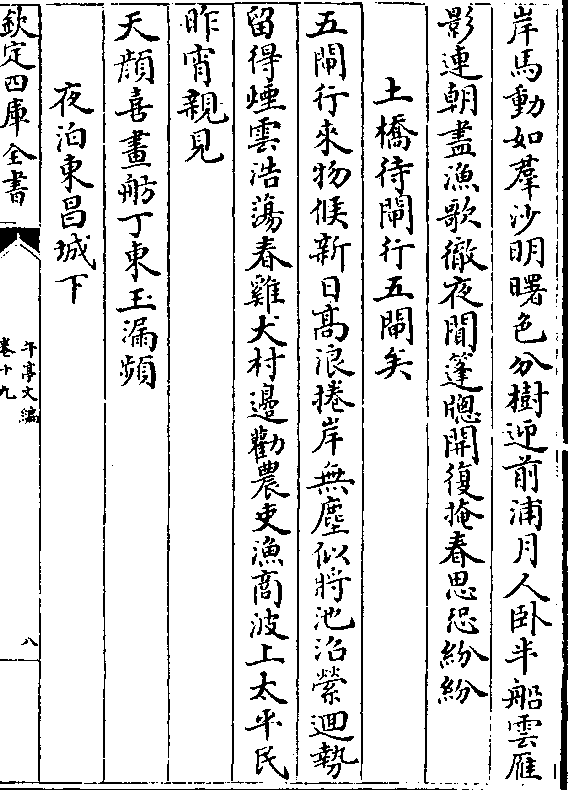 岸馬動如羣沙明曙色分樹迎前浦月人卧半船雲雁
影連朝盡漁歌徹夜聞篷牕開復掩春思恐紛紛
土橋待閘行五閘矣
五閘行来物候新日髙浪捲岸無塵似將池沼縈迴勢
留得煙雲浩蕩春雞犬村邊勸農吏漁商波上太平民
昨宵親見
天顔喜畫舫丁東玉漏頻
夜泊東昌城下
欽定四庫全書
午亭文編
卷十九
八